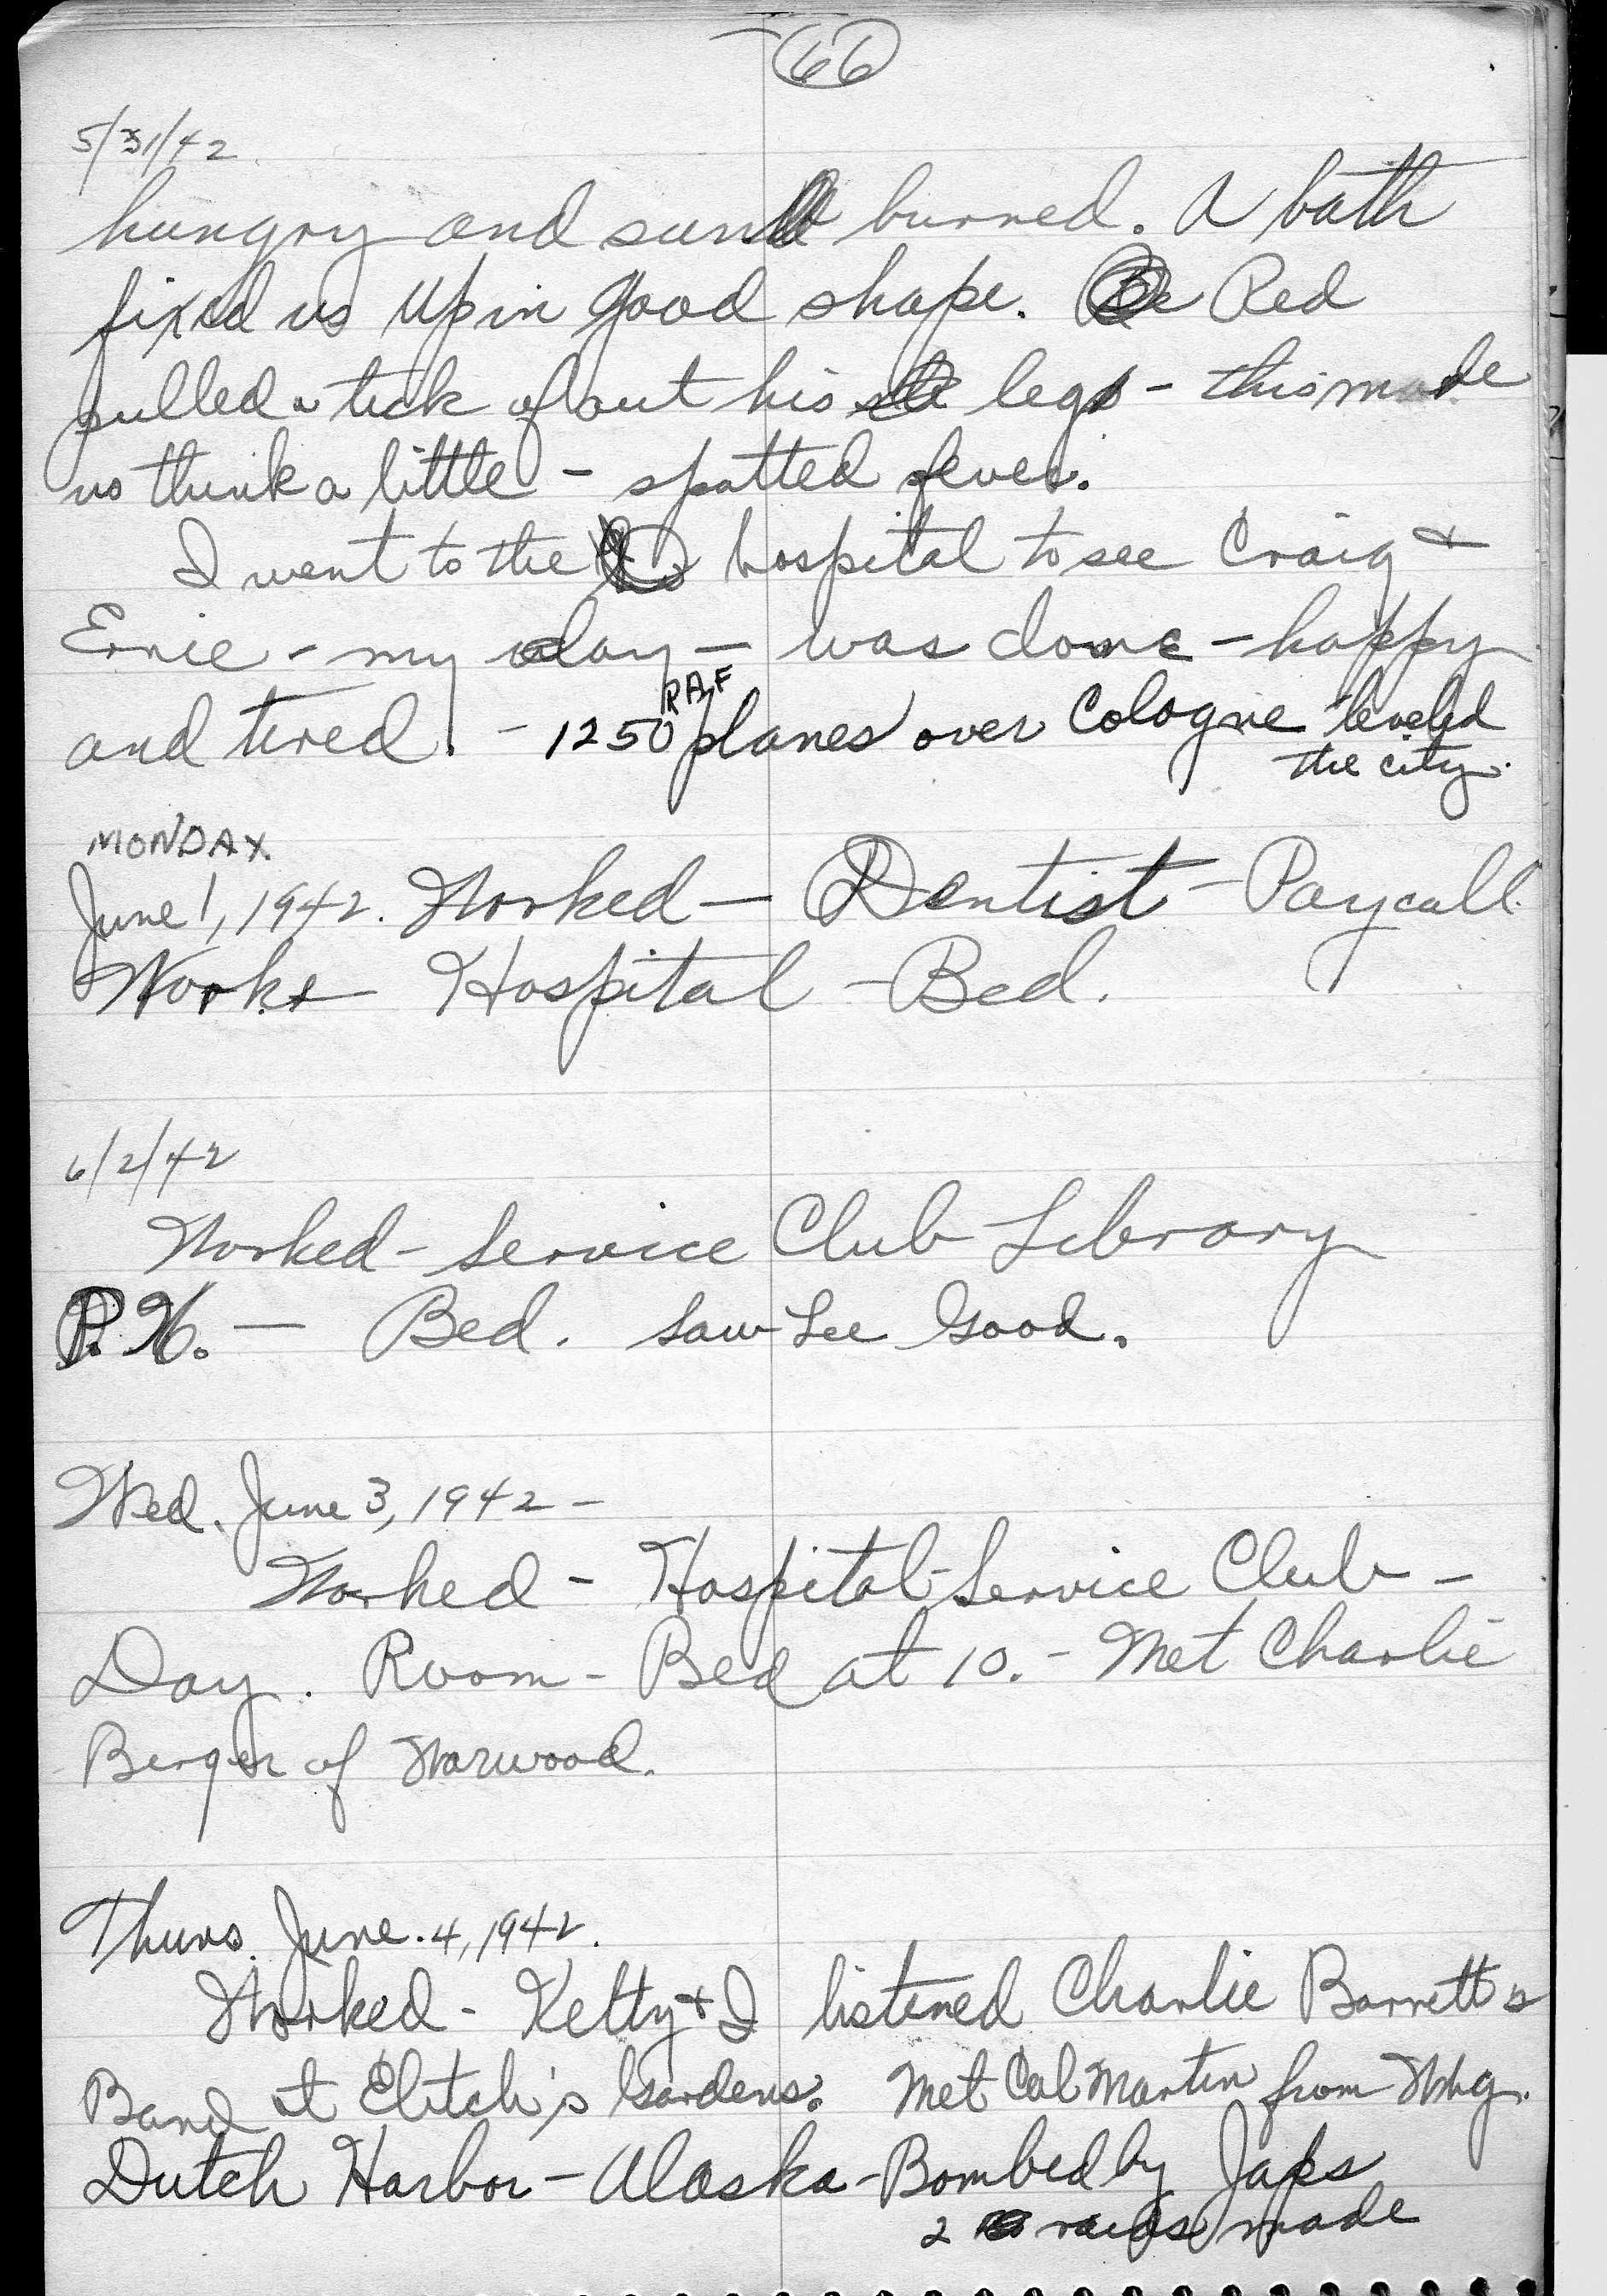 66
5/31/42
hungry and sun burned. A bath
fixed us up in good shape. Red
pulled a tick of out his legs - this made
us think a little - spotted fever.
I went to the hospital to see Craig +
Ernie - my day - was done - happy
and tired. - 1250 RAF planes over Cologne leveled
the city.
MONDAY.
June 1, 1942. Worked - Dentist - Paycall
Works Hospital - Bed.
6/2/42
Worked - Service Club Library
P.X. - Bed. Saw Lee Good.
Wed. June 3, 1942 -
Worked - Hospital - Service Club -
Day. Room - Bed at 10. - Met Charlie
Berger of Norwood.
Thurs. June. 4, 1942.
Worked - Ketty + I listened Charlie Barrett's
Band at Elitch's Gardens. Met Cal Martin from
Dutch Harbor - Alaska - Bombed by Japs
2 raids made